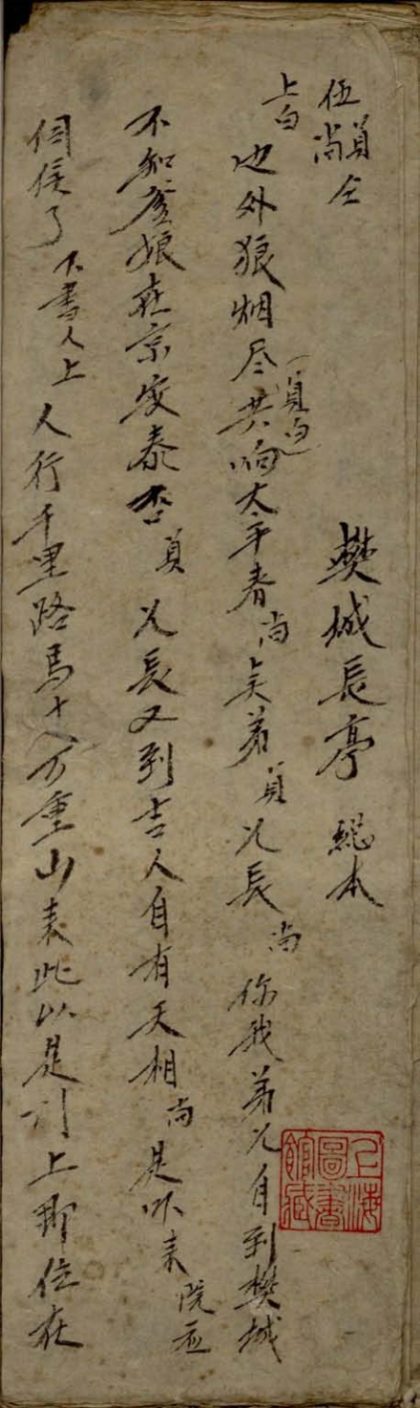 樊城長亭 總本
伍員尚仝上白
边外狼烟尽 員白 共响太平春 尚 吴弟 員 兄長 尚 你我弟兄自到樊城
不知爹娘在京安泰否 員 兄長又到吉人自有天相 尚 是吓來 院应
伺侯了 下書人上 人行千里路馬十八万重山來此以是 上那位在
上海圖書館藏